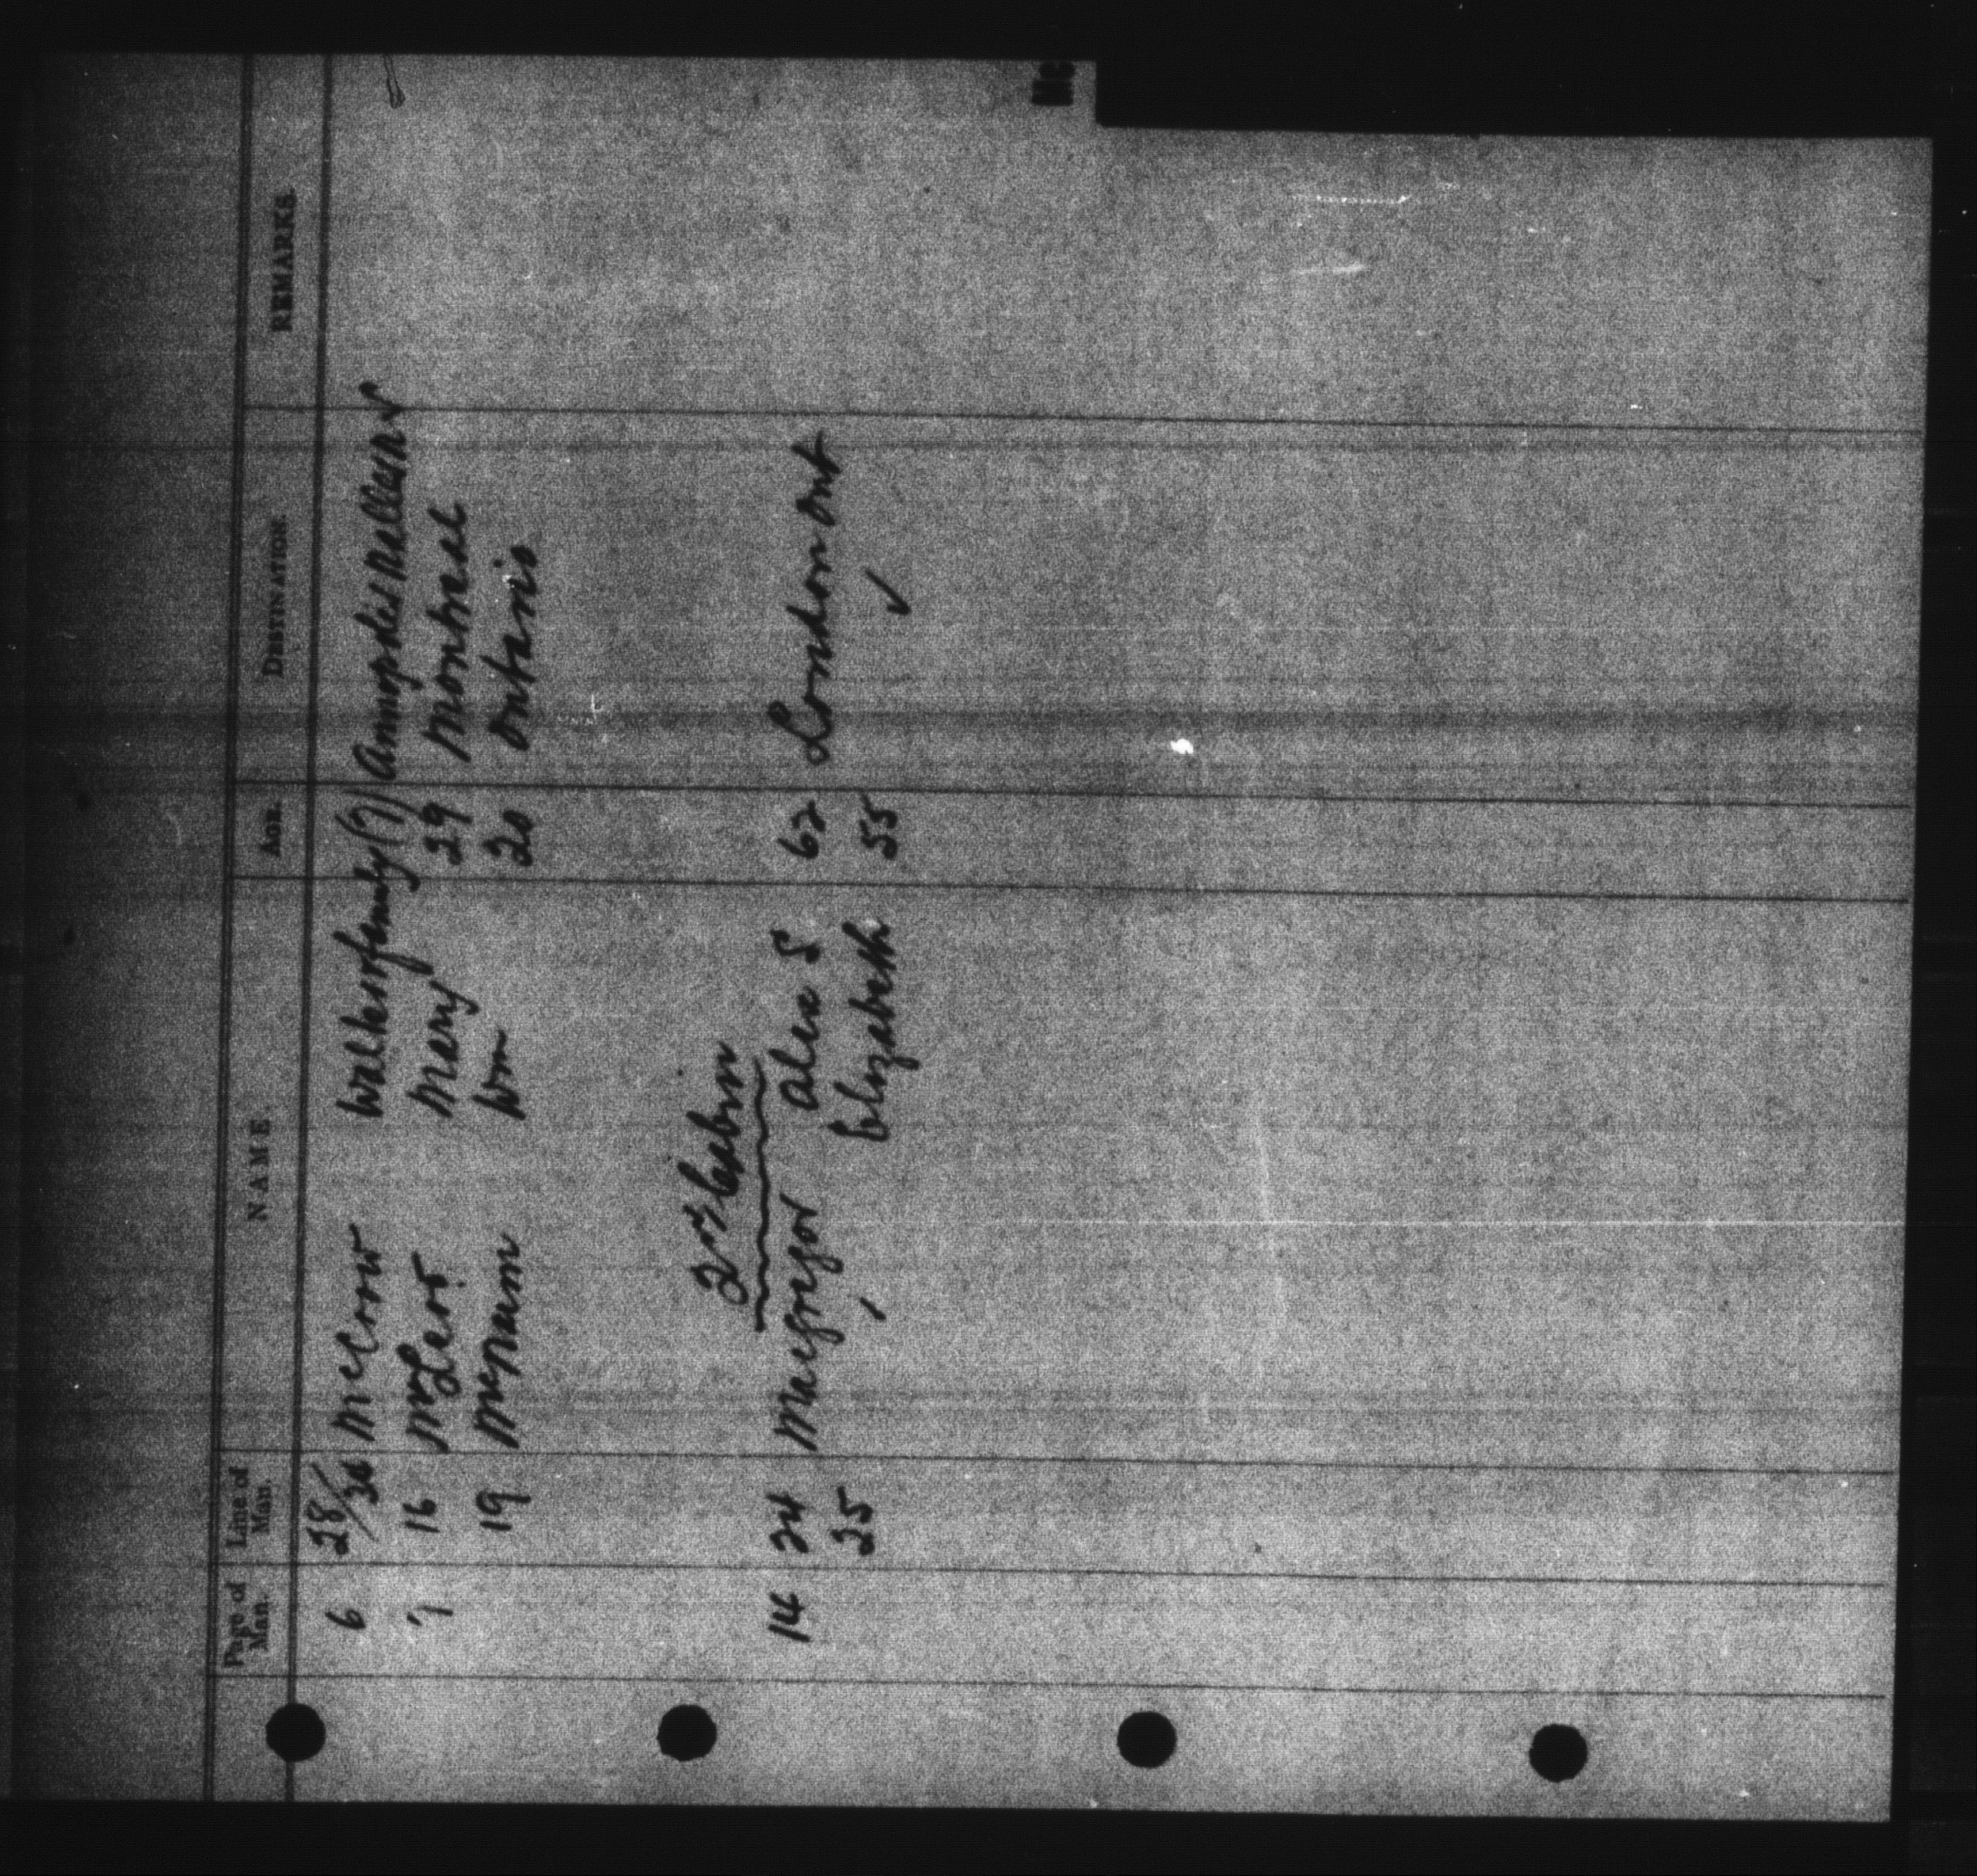 Page of Man. Line of Man. NAME. AGE. DESTINATION. REMARKS.
6 28/30 McCrow Walker family (7) Annapolis Valley NS
7 16 McLeod Mary 29 Montreal
19 McNair Wm 20 Ontario
2nd Cabin
14 24 Macgregor Alex S 62 London Ont
25 " Elizabeth 55 ✓